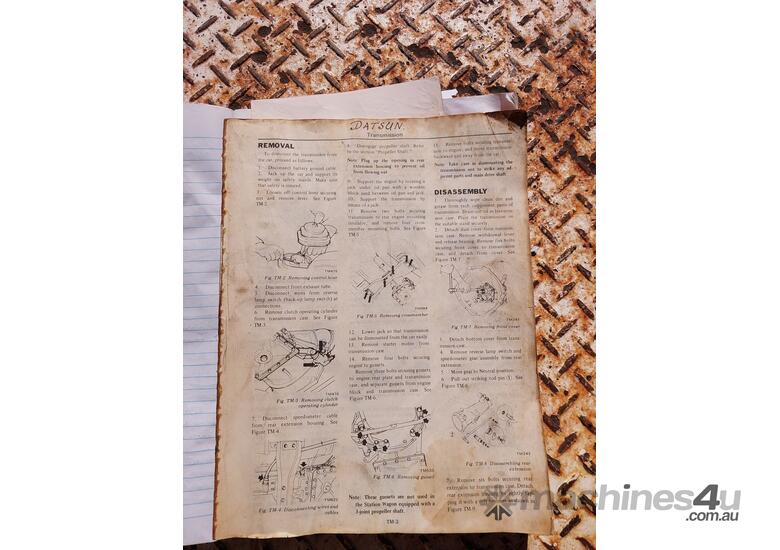 DATSUN.
Transmission
REMOVAL
To dismount the transmission from
the car, proceed as follows.
1. Disconnect battery ground cable.
2. Jack up the car and support its
weight on safety stands. Make sure
that safety is insured.
3. Loosen off control lever securing
nut and remove lever. See Figure
TM-2.
TM470
Fig. TM-2 Removing control lever
4. Disconnect front exhaust tube.
5. Disconnect wires from reverse
lamp switch (back-up lamp switch) at
connections.
6. Remove clutch operating cylinder
from transmission case. See Figure
TM-3.
Fig. TM-3 Removing clutch
operating cylinder
7. Disconnect speedometer cable
from rear extension housing. See
Figure TM-4.
Fig. TM-4 Disconnecting wires and
cables
8. Disengage propeller shaft. Refer
to the section "Propeller Shaft."
Note: Plug up the opening in rear
extension housing to prevent oil
from flowing out.
9. Support the engine by locating a
jack under oil pan with a wooden
block used between oil pan and jack.
10. Support the transmission by
means of a jack.
11. Remove two bolts securing
transmission to rear engine mounting
insulator, and remove four cross-
member mounting bolts. See Figure
TM-5.
Fig. TM-5 Removing crossmember
12. Lower jack so that transmission
can be dismounted from the car easily.
13. Remove starter motor from
transmission case.
14. Remove four bolts securing
engine to gussets.
Remove three bolts securing gussets
to engine rear plate and transmission
case, and separate gussets from engine
block and transmission case. See
Figure TM-6.
Fig. TM-6 Removing gusset
Note: These gussets are not used in
the Station Wagon equipped with a
3-joint propeller shaft.
TM-3
15. Remove bolts securing transmis-
sion to engine, and move transmission
backward and away from the car.
Note: Take care in dismounting the
transmission not to strike any ad-
jacent parts and main drive shaft.
DISASSEMBLY
1. Thoroughly wipe clean dirt and
grease from each component parts of
transmission. Drain out oil in transmis-
sion case. Place the transmission on
the suitable stand securely.
2. Detach dust cover from transmis-
sion case. Remove withdrawal lever
and release bearing. Remove five bolts
securing front cover to transmission
case, and detach front cover. See
Figure TM-7.
Fig. TM-7 Removing front cover
3. Detach bottom cover from trans-
mission case.
4. Remove reverse lamp switch and
speedometer pinion assembly from rear
extension.
5. Move gear to Neutral position.
6. Pull out striking rod pin (1). See
Figure TM-8.
Fig. TM-8 Disassembling rear
extension
7. Remove six bolts securing rear
extension to transmission case. Detach
rear extension
Figure TM-9.
machines4u
.com.au